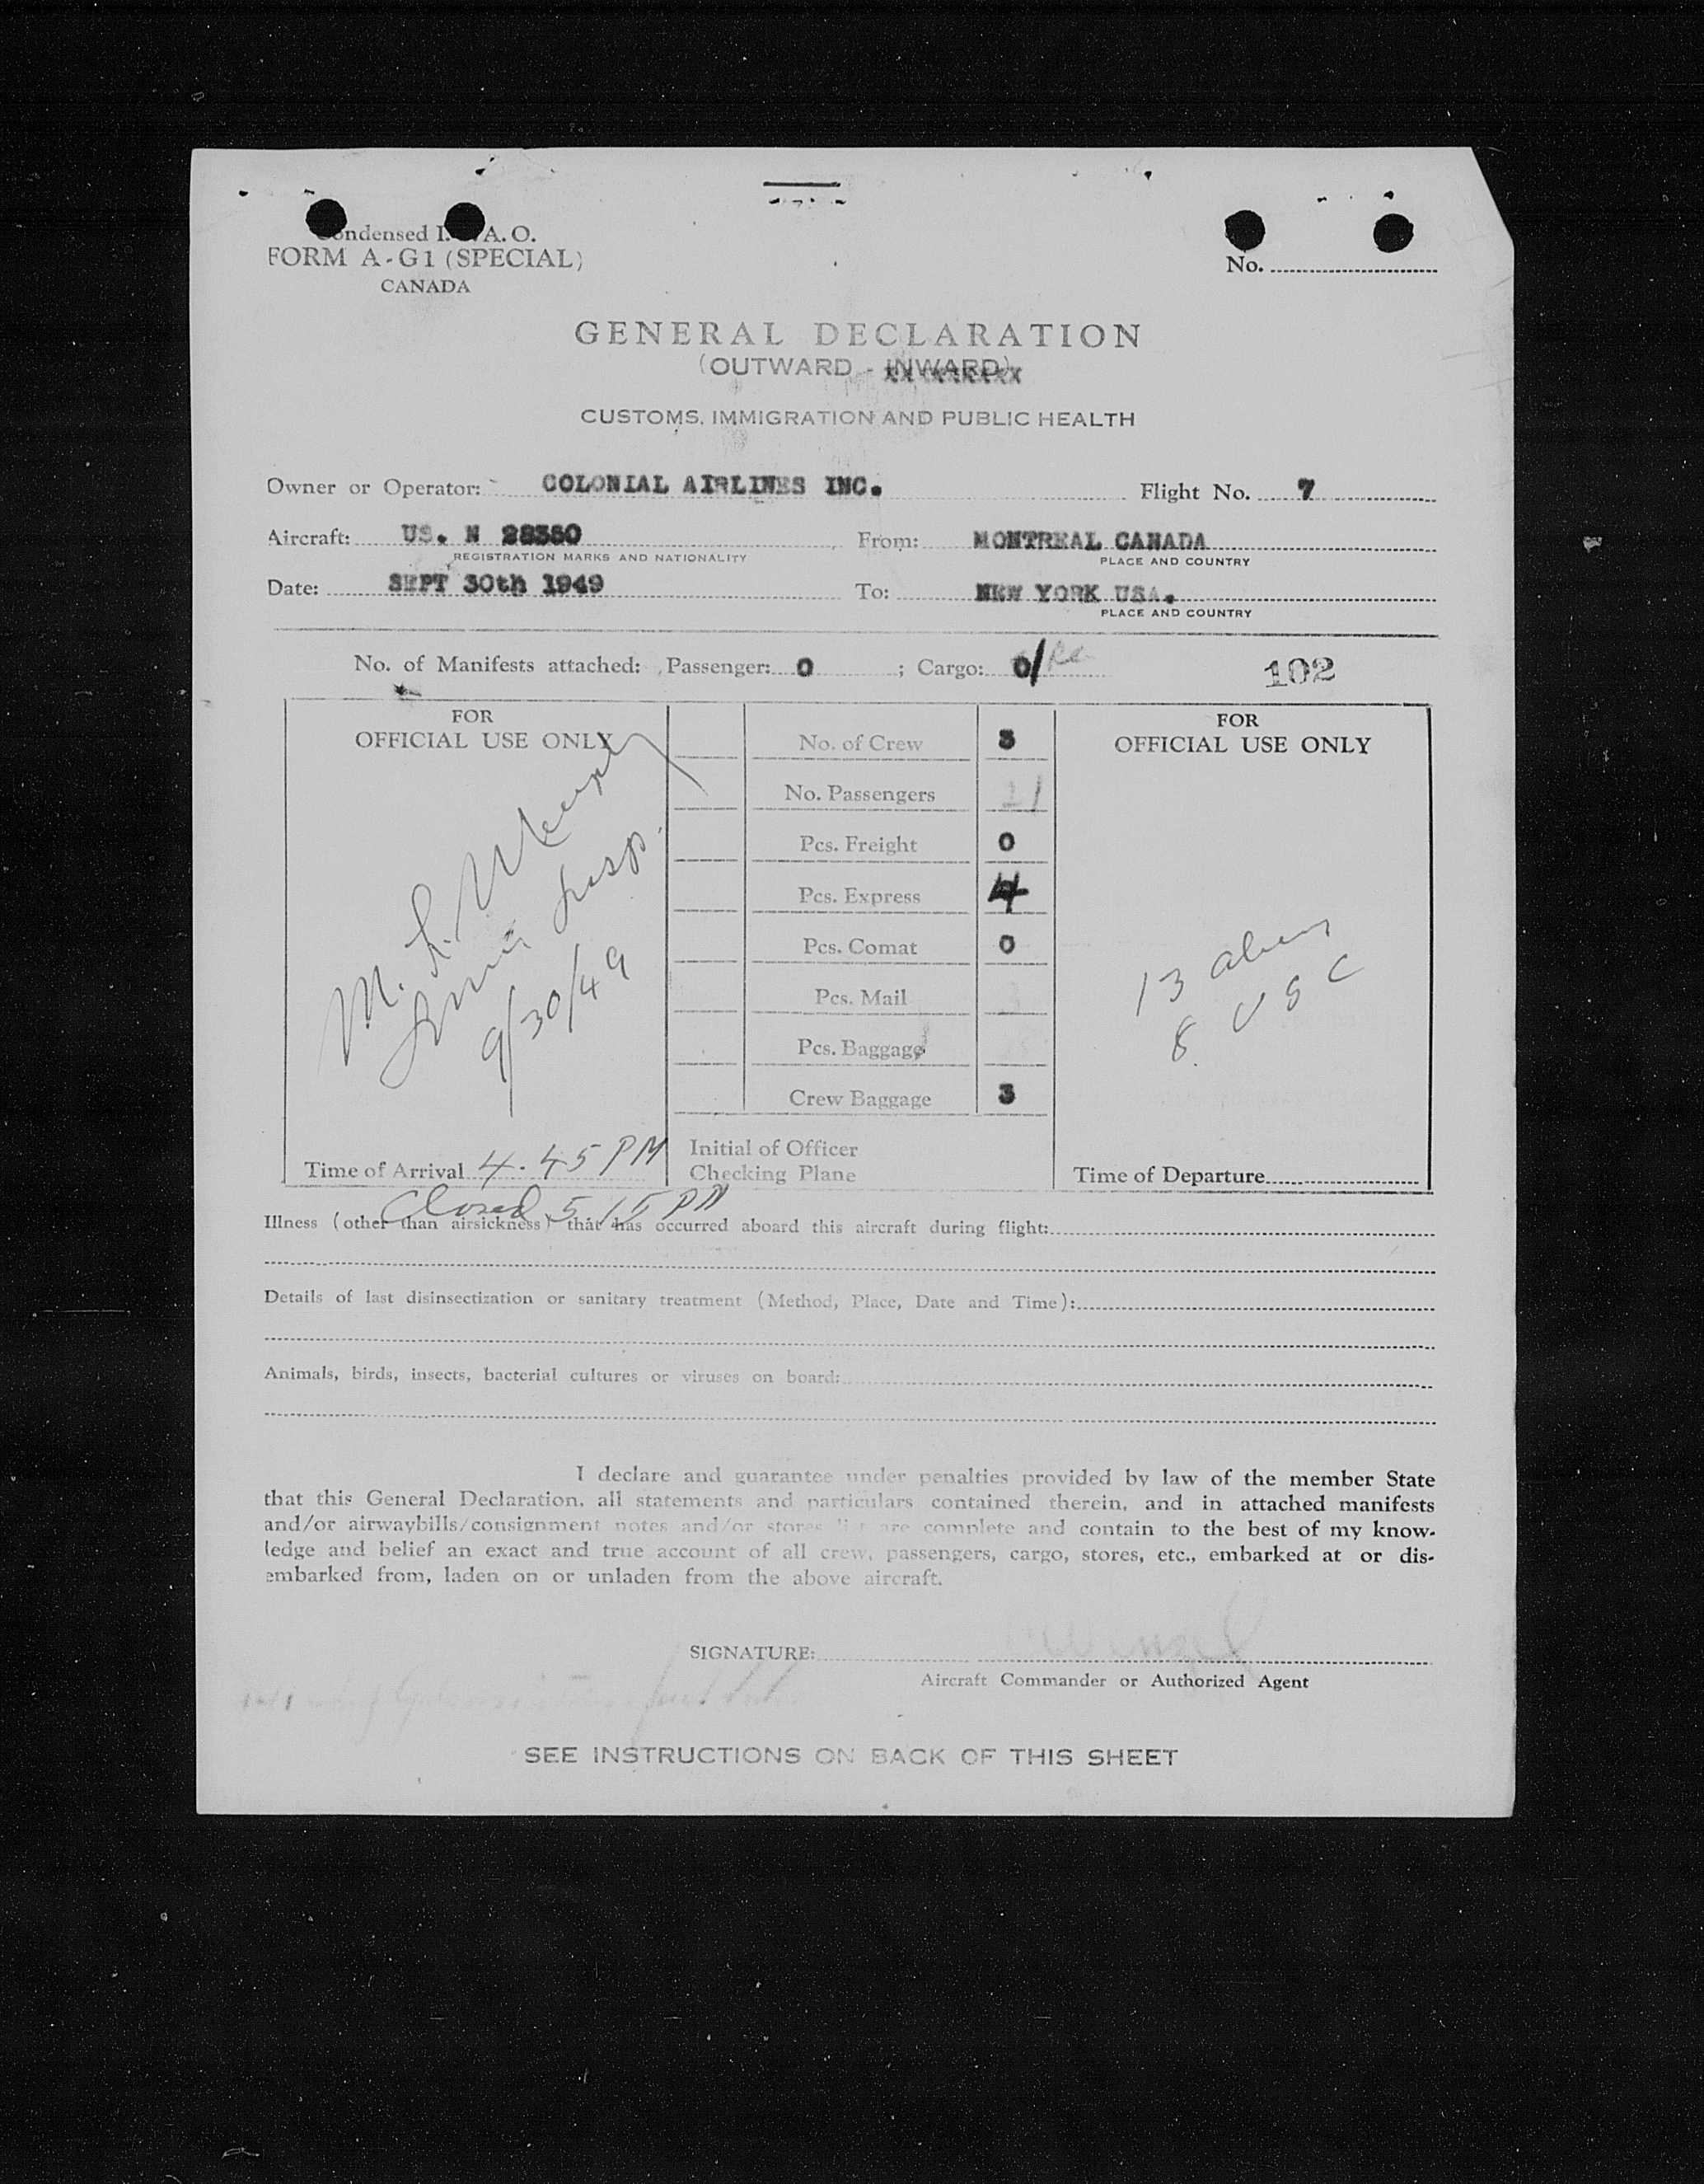 Condensed I. A. O.
FORM A-G1 (SPECIAL)
CANADA
No.
GENERAL DECLARATION
(OUTWARD - INWARD)
CUSTOMS, IMMIGRATION AND PUBLIC HEALTH
Owner or Operator: COLONIAL AIRLINES INC. Flight No. 7
Aircraft: US. N 28360 From: MONTREAL CANADA
REGISTRATION MARKS AND NATIONALITY PLACE AND COUNTRY
Date: SEPT 30th 1949 To: NEW YORK USA.
PLACE AND COUNTRY
No. of Manifests attached: Passenger: 0 ; Cargo: 0/ 102
FOR
OFFICIAL USE ONLY
M. L. Murphy
Imm. Insp.
9/30/49
Time of Arrival 4.45 PM
Closed 5.15 PM
No. of Crew 3
No. Passengers 21
Pcs. Freight 0
Pcs. Express 4
Pcs. Comat 0
Pcs. Mail
Pcs. Baggage
Crew Baggage 3
Initial of Officer
Checking Plane
FOR
OFFICIAL USE ONLY
13 aliens
8 USC
Time of Departure
Illness (other than airsickness) that has occurred aboard this aircraft during flight:
Details of last disinsectization or sanitary treatment (Method, Place, Date and Time):
Animals, birds, insects, bacterial cultures or viruses on board:
I declare and guarantee under penalties provided by law of the member State
that this General Declaration, all statements and particulars contained therein, and in attached manifests
and/or airwaybills/consignment notes and/or stores list are complete and contain to the best of my know-
ledge and belief an exact and true account of all crew, passengers, cargo, stores, etc., embarked at or dis-
embarked from, laden on or unladen from the above aircraft.
SIGNATURE:
Aircraft Commander or Authorized Agent
SEE INSTRUCTIONS ON BACK OF THIS SHEET